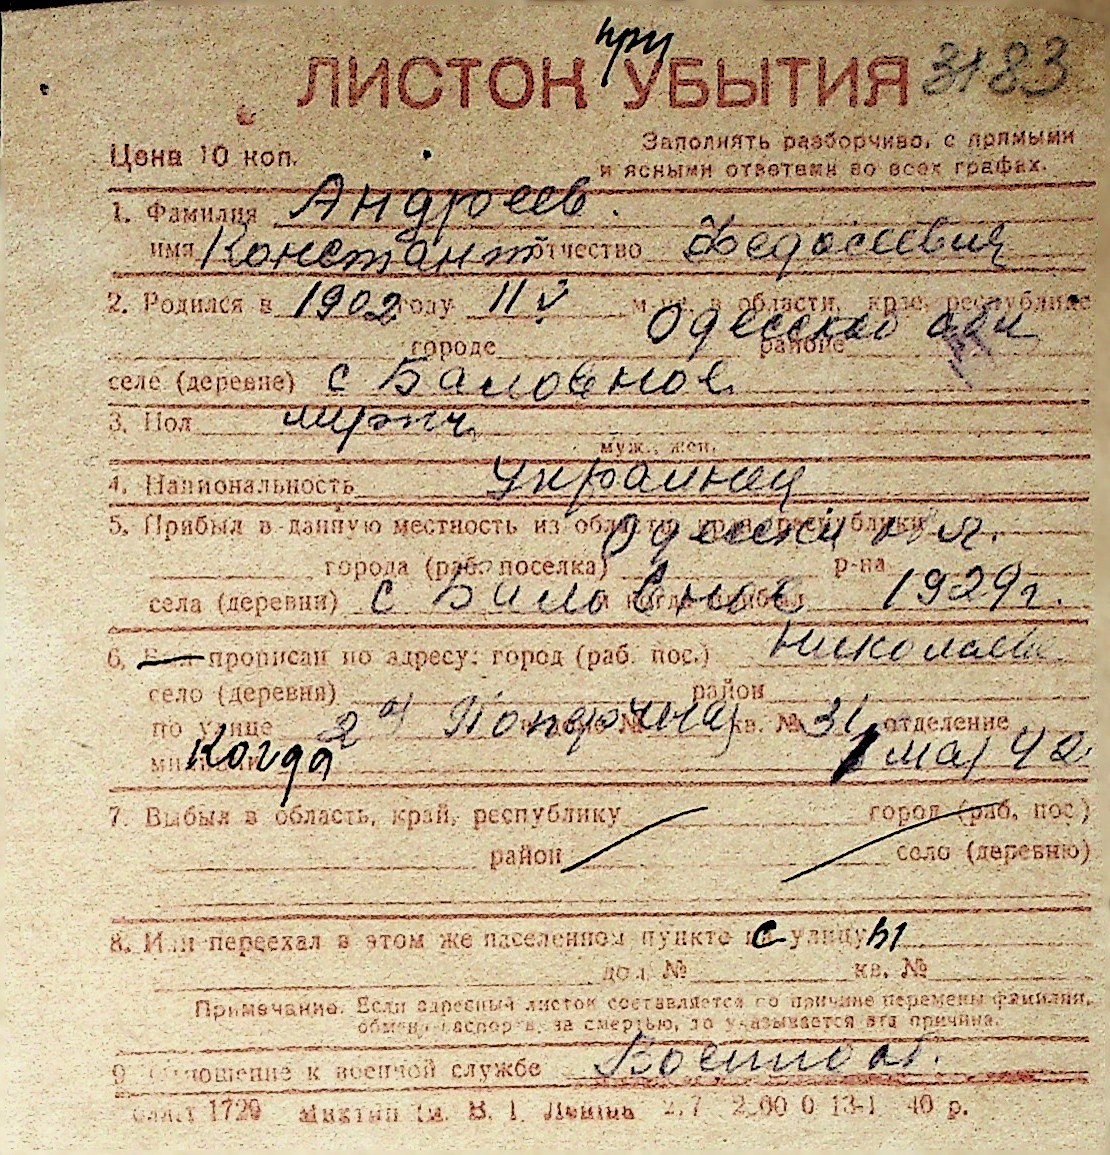 при
ЛИСТОК УБЫТИЯ 3183
Цена 10 коп.
Заполнять разборчиво, с прямыми
и ясными ответами во всех графах.
1. Фамилия Андреев.
имя Константин отчество Федосиевич
2. Родился в 1902 году 11 V м-це, в области, крае, республике
Одесской обл
городе районе
селе (деревне) с Баловное
3. Пол мужч.
муж., жен.
4. Национальность Украинец
5. Прибыл в данную местность из области, края, республики Одесской обл.
города (раб. поселка) р-на
села (деревни) с Баловное и когда прибыл 1929 г.
6. Был прописан по адресу: город (раб. пос.) Николаев
село (деревня) район
по улице 2ая Поперечная кв. № 31 отделение
милиции Когда 1 мая 42
7. Выбыл в область, край, республику город (раб. пос.)
район село (деревню)
8. Или переехал в этом же населенном пункте с улицы
дом № кв. №
Примечание. Если адресный листок составляется по причине перемены фамилии,
обмена паспорта, за смертью, то указывается эта причина.
9. Отношение к военной службе Военнооб.
1720 им. В. І. Леніна 40 р.